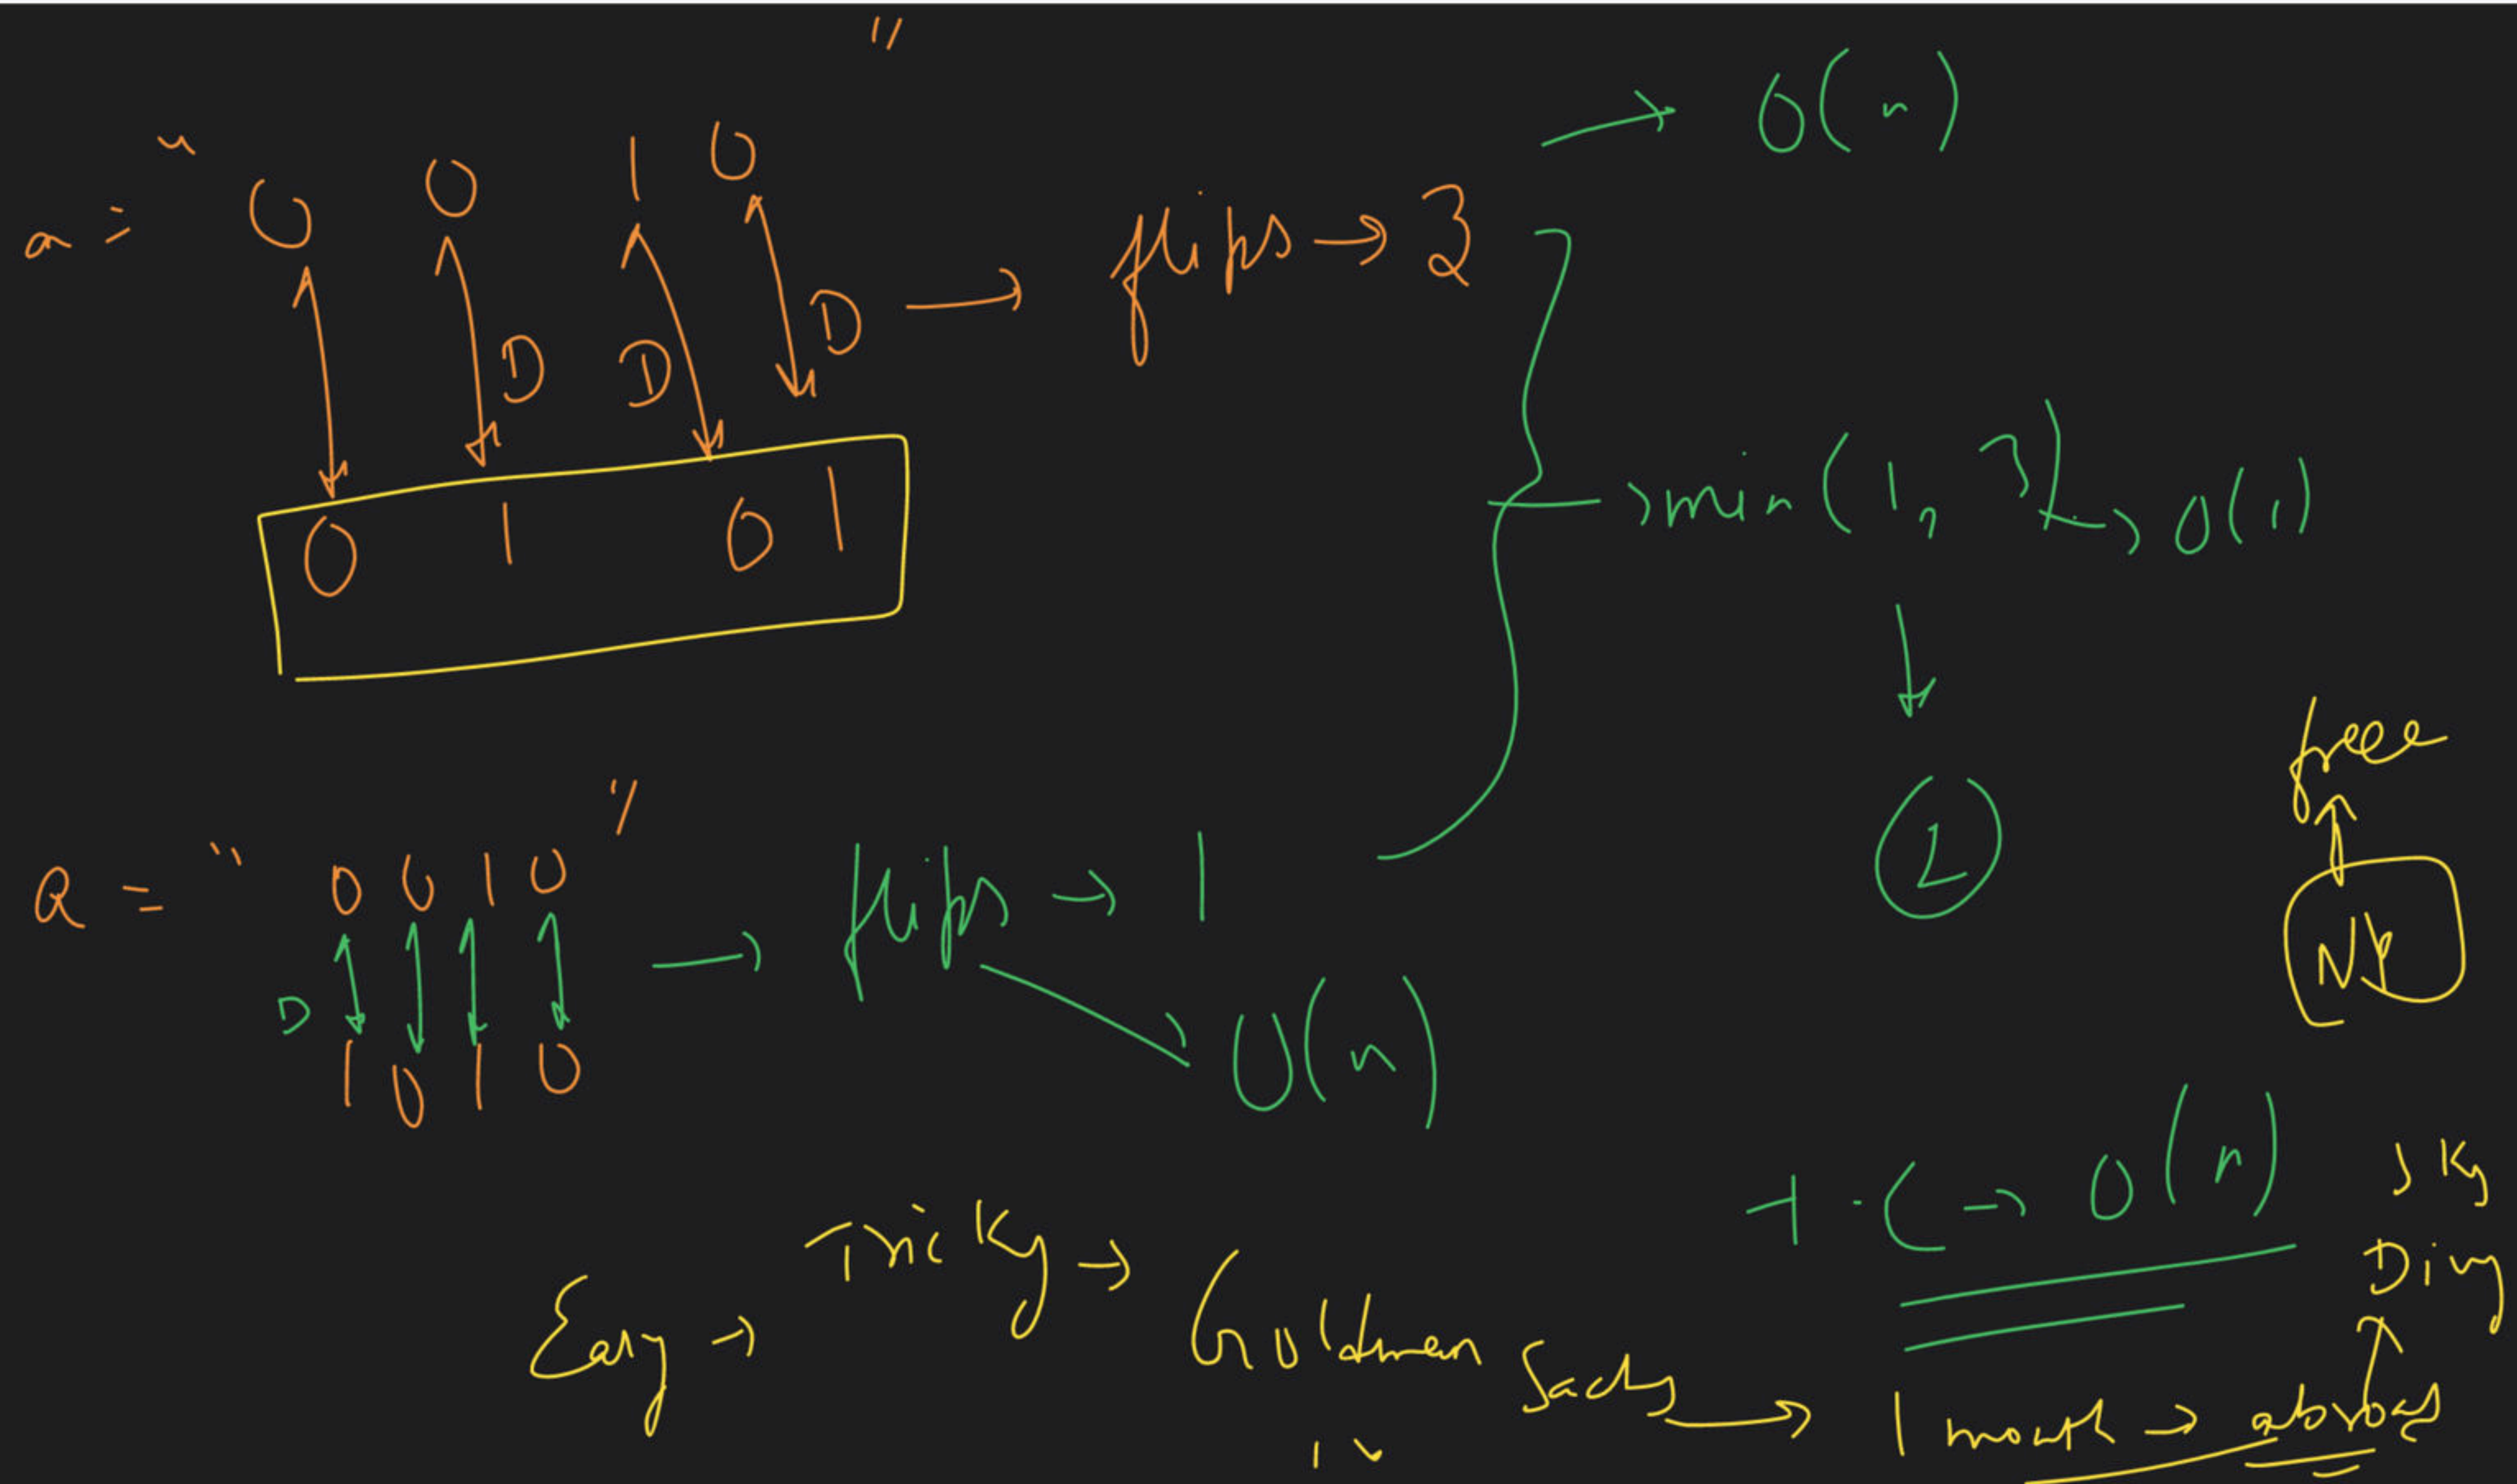 a = " 0 0 1 0 "
D D D → flips → 3
→ O(n)
0 1 0 1
→ min(1, 3) → O(1)
1
a = " 0 0 1 0 "
D → flips → 1
1 0 1 0
O(n)
free
NY
T.C → O(n)
Easy → Tricky → Goldman Sachs → 1 month → abroad
Sky
Diving